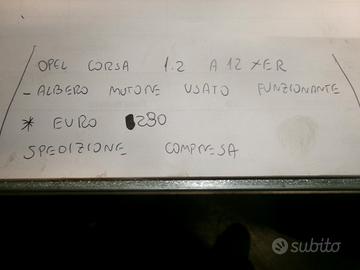 OPEL CORSA 1.2 A12XER
- ALBERO MOTORE USATO FUNZIONANTE
* EURO 290
SPEDIZIONE COMPRESA
subito